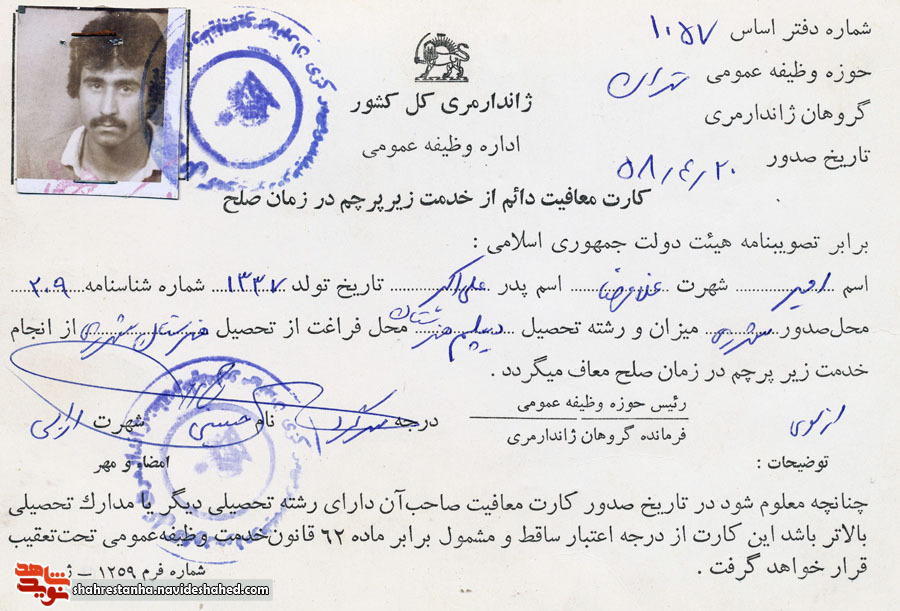 شماره دفتر اساس ۱۰۵۷
حوزه وظیفه عمومی تهران
گروهان ژاندارمری
تاریخ صدور ۵۸/۴/۲۰
ژاندارمری کل کشور
اداره وظیفه عمومی
کارت معافیت دائم از خدمت زیر پرچم در زمان صلح
برابر تصویبنامه هیئت دولت جمهوری اسلامی :
اسم امیر شهرت غلامرضا اسم پدر علی‌اکبر تاریخ تولد ۱۳۳۷ شماره شناسنامه ۲۰۹
محل صدور میزان و رشته تحصیل دیپلم هنرستان محل فراغت از تحصیل هنرستان از انجام
خدمت زیر پرچم در زمان صلح معاف میگردد .
از سوی رئیس حوزه وظیفه عمومی
فرمانده گروهان ژاندارمری
درجه سرگرد نام حسین شهرت
امضاء و مهر
توضیحات :
چنانچه معلوم شود در تاریخ صدور کارت معافیت صاحب آن دارای رشته تحصیلی دیگر یا مدارك تحصیلی
بالاتر باشد این کارت از درجه اعتبار ساقط و مشمول برابر ماده ۶۲ قانون خدمت وظیفه عمومی تحت تعقیب
قرار خواهد گرفت .
شماره فرم ۱۲۵۹ – ژ
نوید شاهد
shahrestanha.navideshahed.com